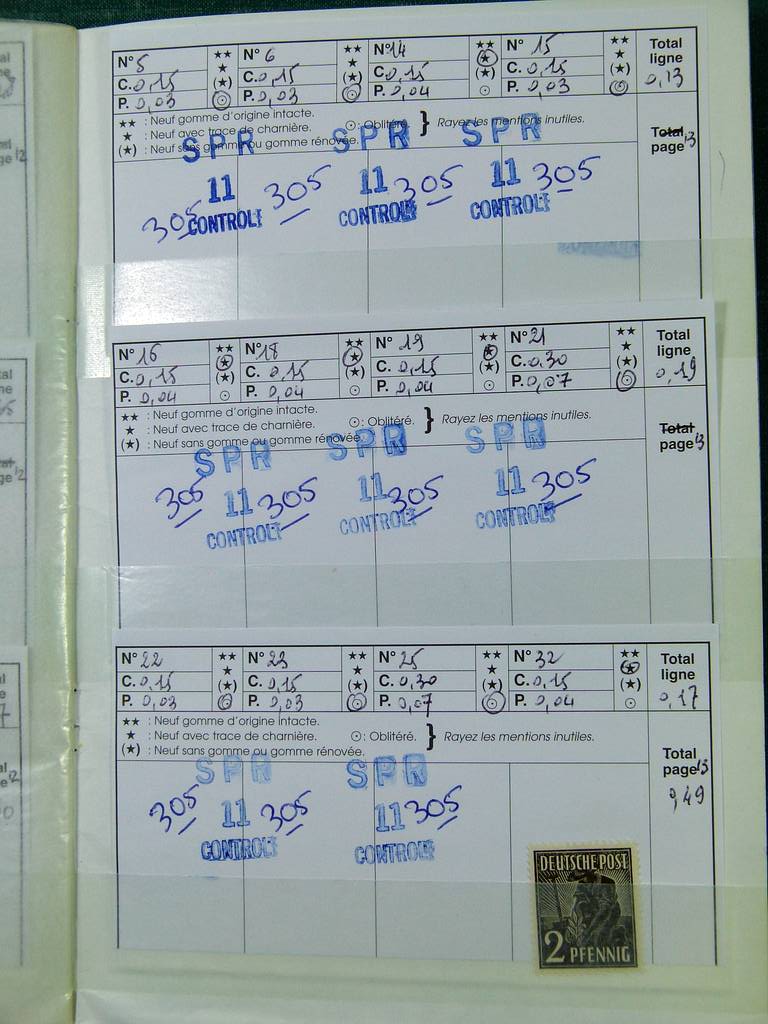 N° 5 ★★ N° 6 ★★ N° 14 ★★ N° 15 ★★ Total
C. 0,15 ★ C. 0,15 ★ C. 0,15 ★ C. 0,15 ★ ligne
P. 0,03 (★) ⊙ P. 0,03 (★) ⊙ P. 0,04 (★) ⊙ P. 0,03 (★) ⊙ 0,13
★★ : Neuf gomme d'origine intacte.
★ : Neuf avec trace de charnière. ⊙ : Oblitéré. } Rayez les mentions inutiles.
(★) : Neuf sans gomme ou gomme rénovée.
Total
page 13
SPR SPR SPR
11 11 11
305 305 305 305
CONTROLE CONTROLE CONTROLE
N° 16 ★★ N° 18 ★★ N° 19 ★★ N° 21 ★★ Total
C. 0,15 ★ C. 0,15 ★ C. 0,15 ★ C. 0,30 ★ ligne
P. 0,04 (★) ⊙ P. 0,04 (★) ⊙ P. 0,04 (★) ⊙ P. 0,07 (★) ⊙ 0,19
★★ : Neuf gomme d'origine intacte.
★ : Neuf avec trace de charnière. ⊙ : Oblitéré. } Rayez les mentions inutiles.
(★) : Neuf sans gomme ou gomme rénovée.
Total
page 13
SPR SPR SPR
305 305 305 305
11 11 11
CONTROLE CONTROLE CONTROLE
N° 22 ★★ N° 23 ★★ N° 25 ★★ N° 32 ★★ Total
C. 0,15 ★ C. 0,15 ★ C. 0,30 ★ C. 0,15 ★ ligne
P. 0,03 (★) ⊙ P. 0,03 (★) ⊙ P. 0,07 (★) ⊙ P. 0,04 (★) ⊙ 0,17
★★ : Neuf gomme d'origine intacte.
★ : Neuf avec trace de charnière. ⊙ : Oblitéré. } Rayez les mentions inutiles.
(★) : Neuf sans gomme ou gomme rénovée.
Total
page 13
0,49
SPR SPR
305 305 305
11 11
CONTROLE CONTROLE
DEUTSCHE POST
2 PFENNIG